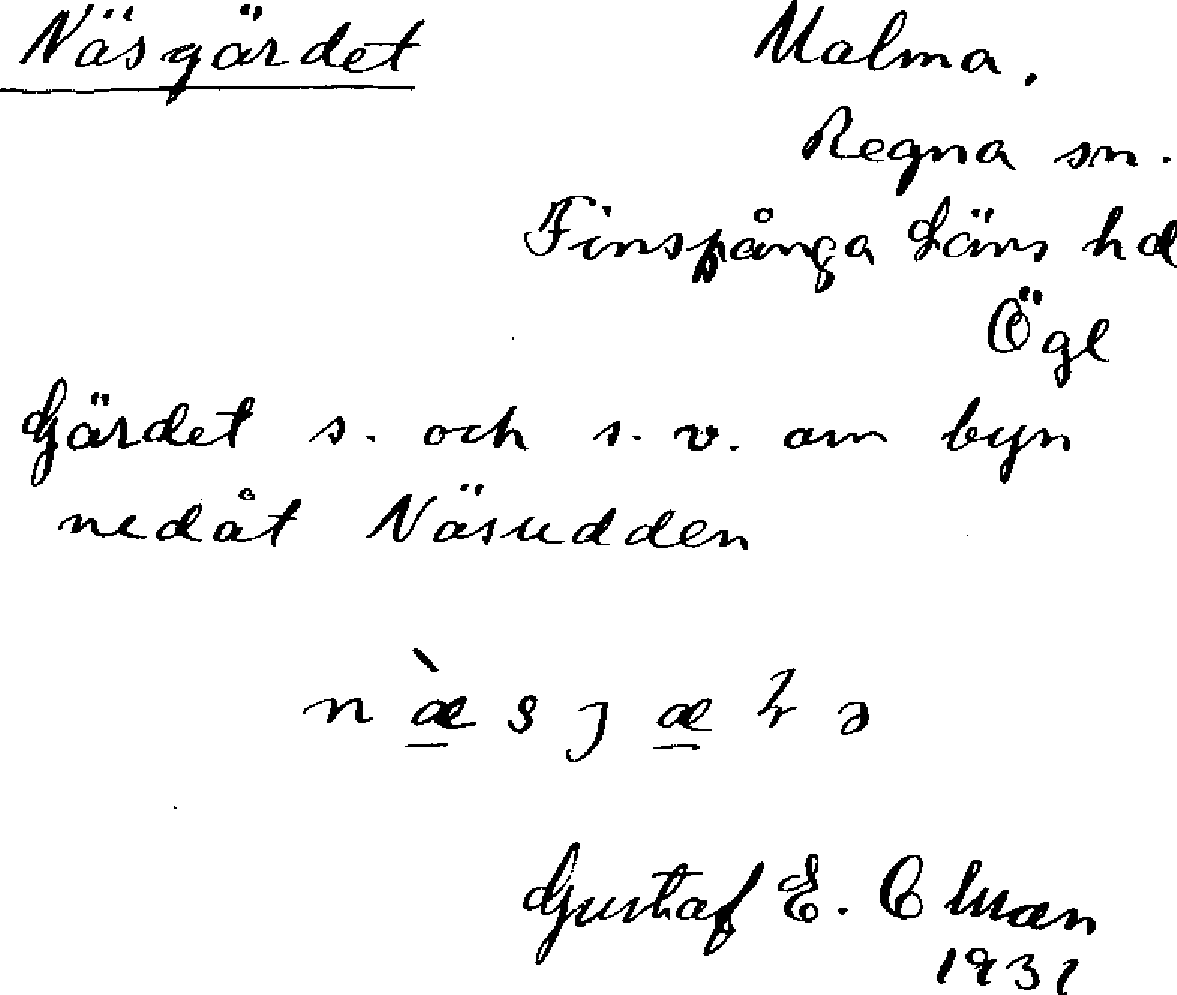 Näsgärdet
Malma.
Regna sn.
Finspånga läns hd
Ögl
Gärdet s. och s. v. om byn
nedåt Näsudden
Gustaf E.
1931